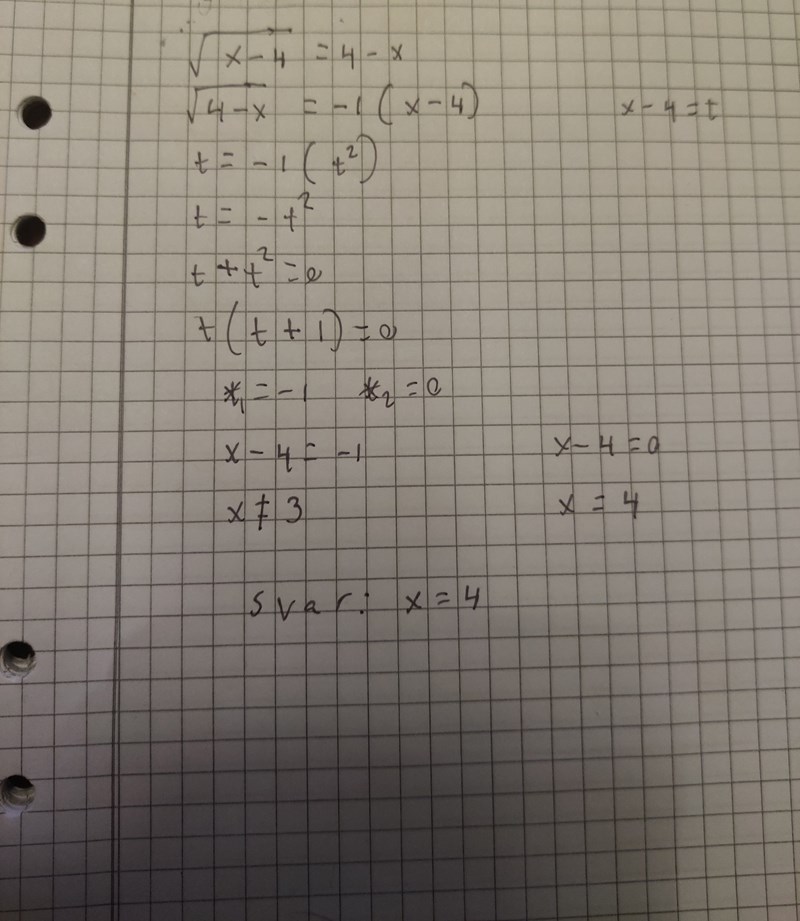 √(x-4) = 4 - x
√(4-x) = -1 (x-4) x - 4 = t
t = -1 (t²)
t = - t²
t + t² = 0
t (t + 1) = 0
t₁ = -1 t₂ = 0
x - 4 = -1 x - 4 = 0
x ≠ 3 x = 4
Svar: x = 4